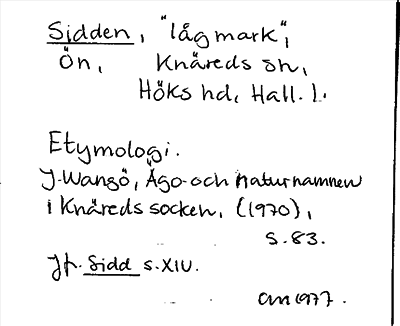 Sidden, "lågmark",
Ön, Knäreds sn,
Höks hd, Hall. l.
Etymologi.
J. Wangö, Ägo- och naturnamnen
i Knäreds socken, (1970),
s. 83.
Jfr. Sidd s. XIV.
1977.